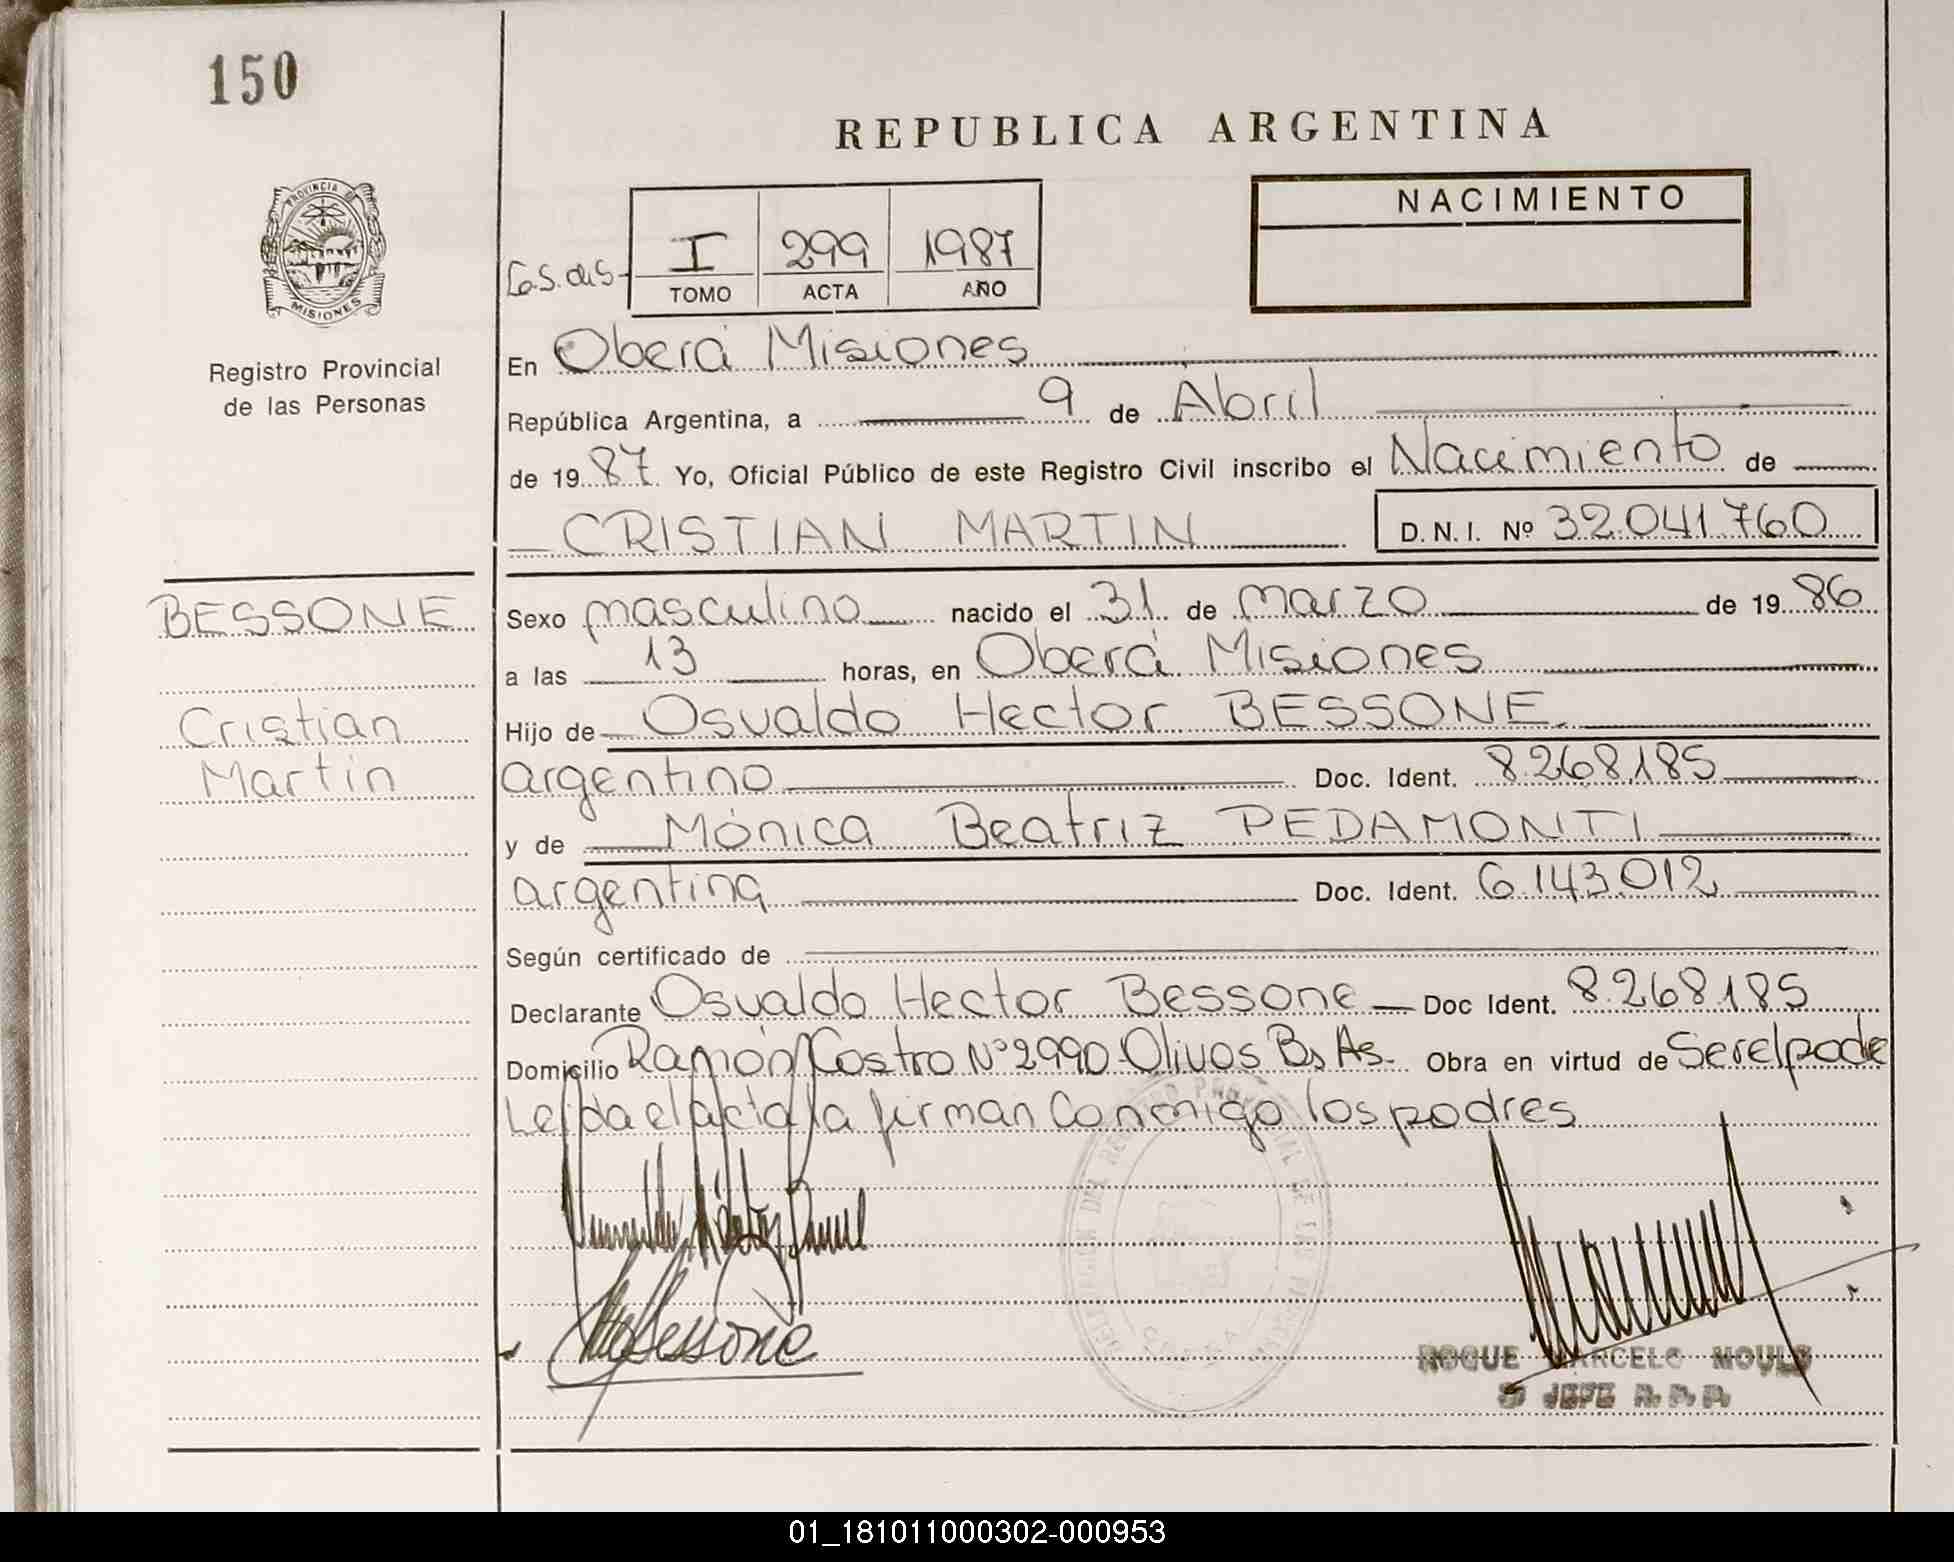 150
REPUBLICA ARGENTINA
NACIMIENTO
I 299 1987
TOMO ACTA AÑO
PROVINCIA DE
MISIONES
Registro Provincial
de las Personas
En Oberá Misiones
República Argentina, a 9 de Abril
de 1987 Yo, Oficial Público de este Registro Civil inscribo el Nacimiento de
CRISTIAN MARTIN D.N.I. Nº 32.041.760
BESSONE
Cristian
Martín
Sexo masculino nacido el 31 de marzo de 1986
a las 13 horas, en Oberá Misiones
Hijo de Osvaldo Hector BESSONE
argentino Doc. Ident. 8.268.185
y de Mónica Beatriz PEDAMONTI
argentina Doc. Ident. 6.143.012
Según certificado de
Declarante Osvaldo Hector Bessone Doc Ident. 8.268.185
Domicilio Ramón Castro Nº 2990 Olivos Bs As. Obra en virtud de Ser el padre
Leida el acta la firman conmigo los padres
Bessone
ROQUE MARCELO MOULS
JEFE R.P.P.
01_181011000302-000953